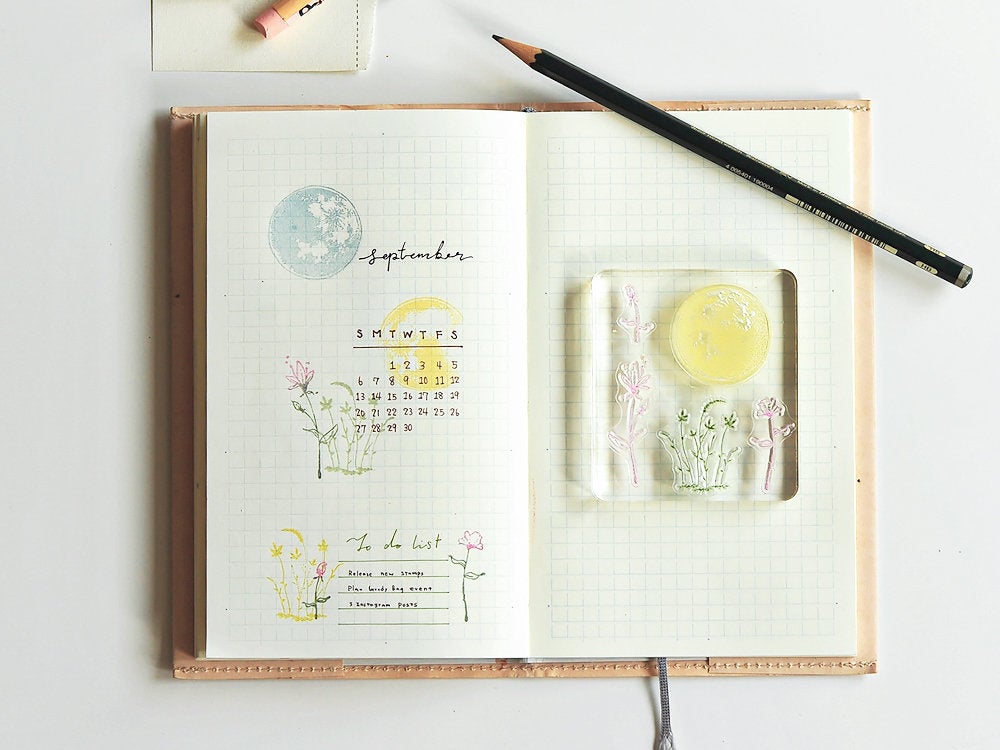 september
S M T W T F S
1 2 3 4 5
6 7 8 9 10 11 12
13 14 15 16 17 18 19
20 21 22 23 24 25 26
27 28 29 30
To do list
Release new stamps
Plan Goody Bag event
3 Instagram posts